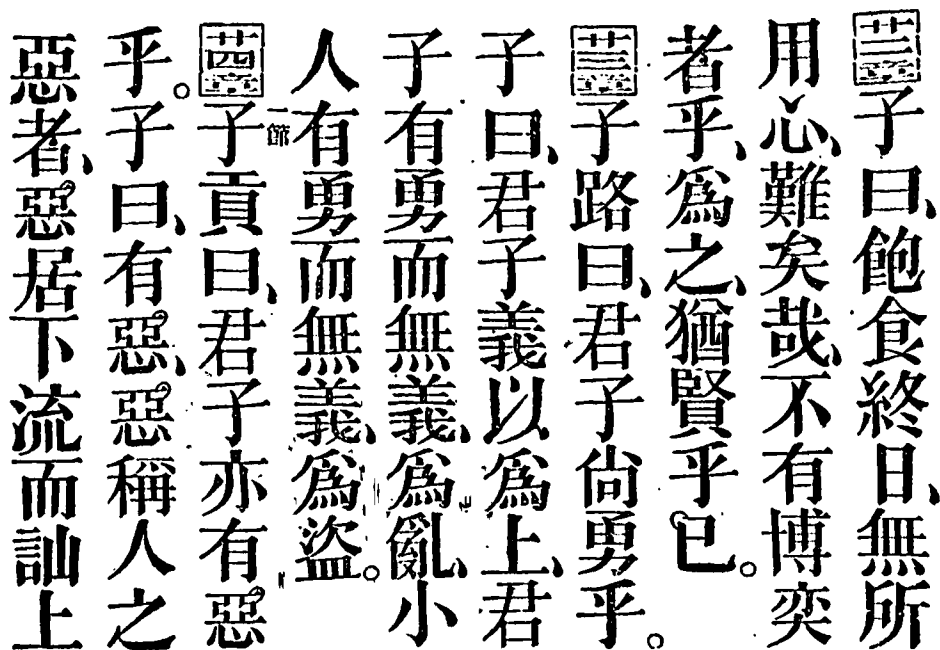 廿二章子曰、飽食終日、無所
用心、難矣哉、不有博奕
者乎、爲之、猶賢乎已。
廿三章子路曰、君子尚勇乎。
子曰、君子義以爲上、君
子有勇而無義、爲亂、小
人有勇而無義、爲盜。
廿四章一節子貢曰、君子亦有惡
乎。子曰、有惡、惡稱人之
惡者、惡居下流而訕上